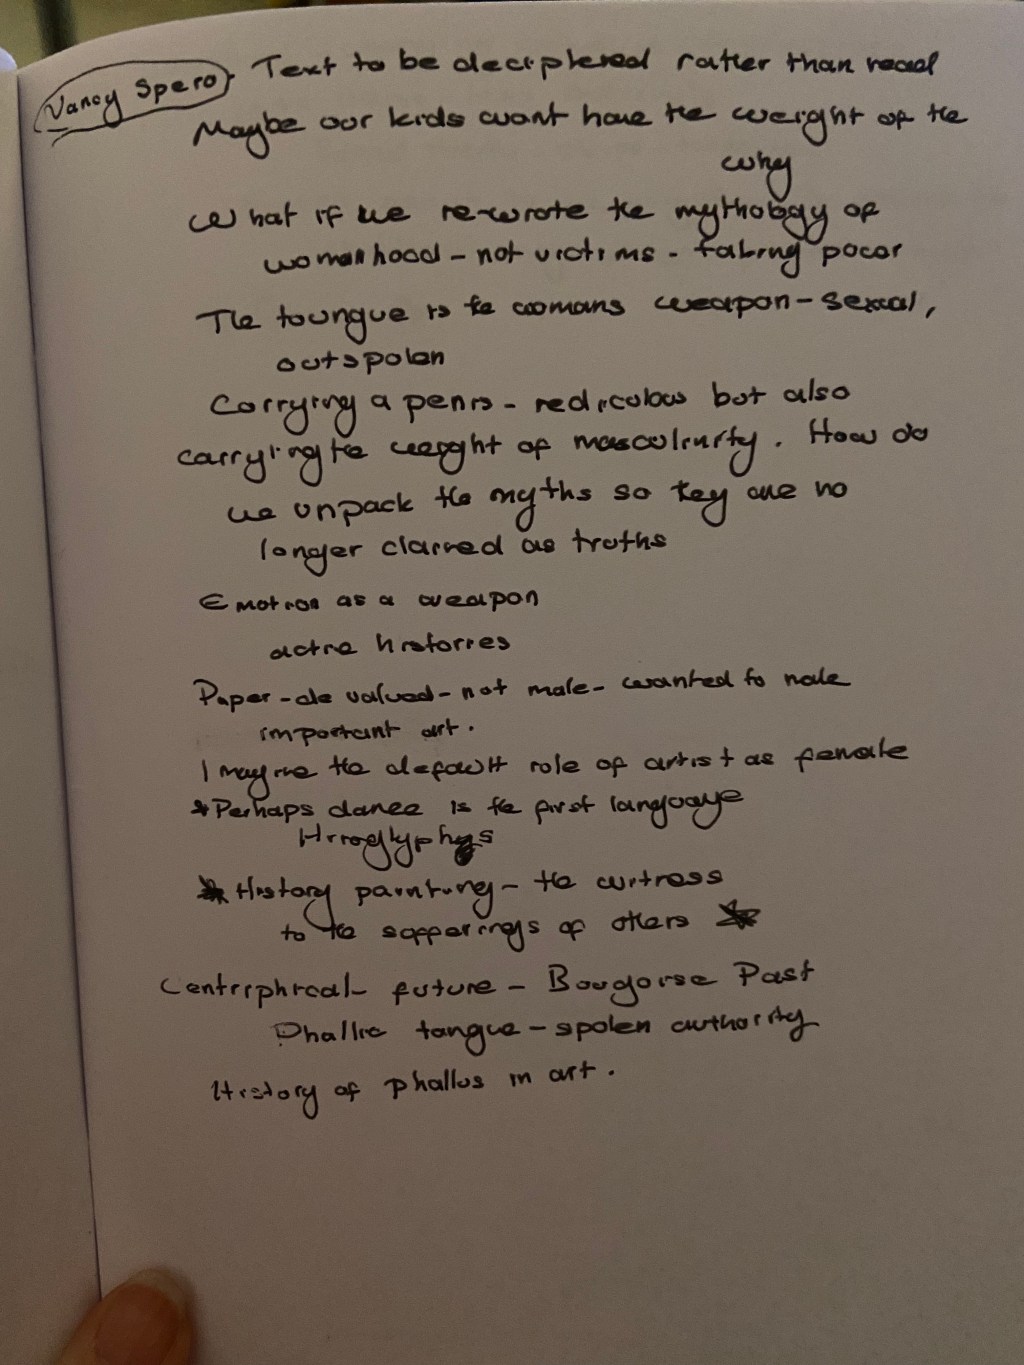 Nancy Spero. Text to be deciphered rather than read
Maybe our kids wont have the weight of the
why
What if we re-wrote the mythology of
womanhood - not victims - taking pocor
The toungue is the womans weapon - sexual,
outspoken
Carrying a penis - rediculous but also
carrying the weight of masculinity. How do
we unpack the myths so they are no
longer claimed as truths
Emotion as a weapon
active histories
Paper - de valued - not male - wanted to make
important art.
Imagine the default role of artist as female
* Perhaps dance is the first language
Hiroglyphys
* History painting - the witness
to the sufferings of others *
Centriphical future - Bougoise Past
Phallic tongue - spoken authority
History of phallus in art.